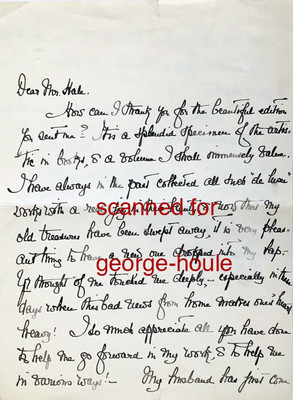 Dear Mr. Hale.
How can I thank you for the beautiful edition
you sent me? It is a splendid specimen of the artis-
tic in books, & a volume I shall immensely value.
I have always in the past collected all such "de luxe"
works with a
scanned for
now that my
old treasures have been swept away, it is a very pleas-
ant thing to have a new one dropped into my lap.
george-houle
Yr thought of me touched me deeply, especially in these
days when the bad news from home makes one's heart
heavy! I so much appreciate all you have done
to help me go forward in my work, & to help me
in various ways! — My husband has just come